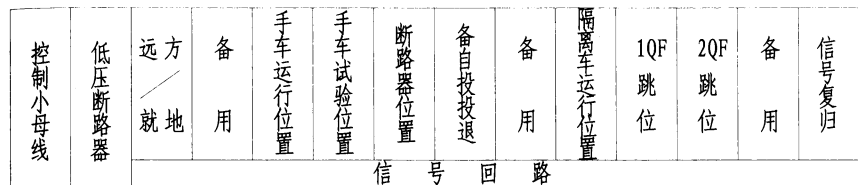 控制小母线
低压断路器
远方/就地
备用
手车运行位置
手车试验位置
断路器位置
备自投投退
备用
隔离车运行位置
1QF跳位
2QF跳位
备用
信号复归
信号回路